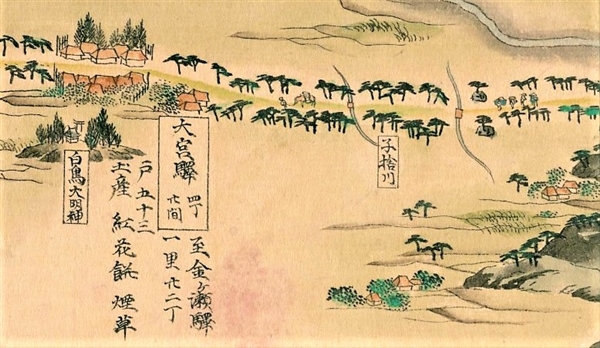 大宮驛 四丁廿間
至金ヶ瀬驛
一里廿二丁
戸五十三
土産 紅花餅 煙草
子捨川
白鳥大明神